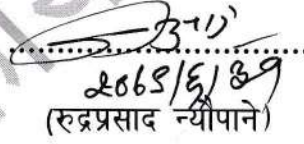 २०६९/६/३१
(रुद्रप्रसाद न्यौपाने)